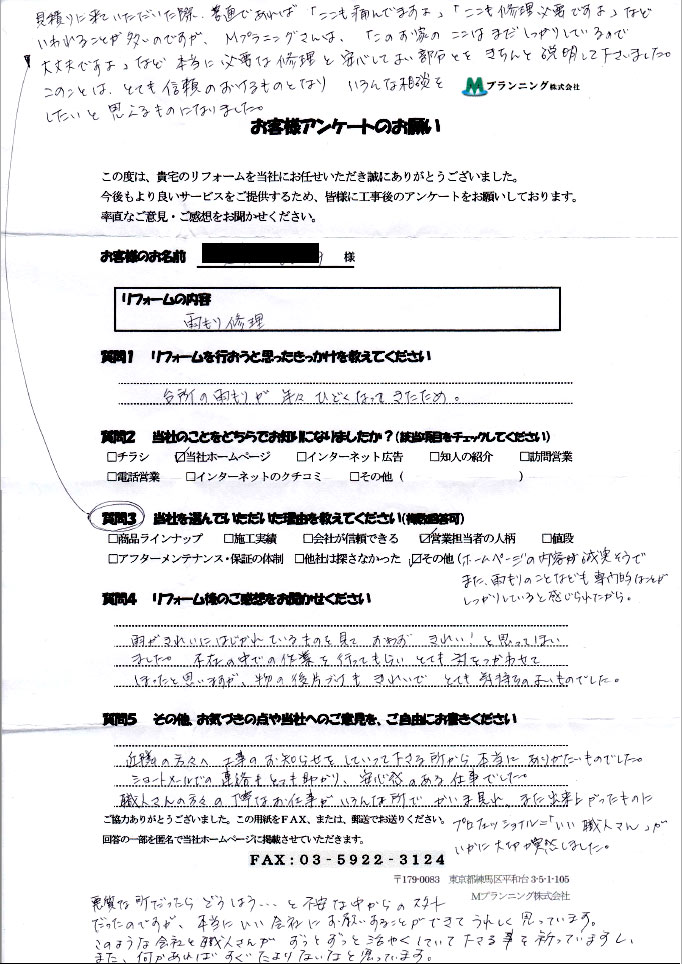 見積りに来ていただいた際、普通であれば「ここも痛んでますよ」「ここも修理必要ですよ」など
いわれることが多いのですが、Mプランニングさんは、「このお家のここはまだしっかりしているので
大丈夫ですよ」など本当に必要な修理と安心してよい部分とをきちんと説明して下さいました。
このことは、とても信頼のおけるものとなり いろんな相談を
したいと思えるものになりました。
Mプランニング株式会社
お客様アンケートのお願い
この度は、貴宅のリフォームを当社にお任せいただき誠にありがとうございました。
今後もより良いサービスをご提供するため、皆様に工事後のアンケートをお願いしております。
率直なご意見・ご感想をお聞かせください。
お客様のお名前 様
リフォームの内容
雨もり修理
質問1 リフォームを行おうと思ったきっかけを教えてください
台所の雨もりが年々ひどくなってきたため。
質問2 当社のことをどちらでお知りになりましたか？(該当項目をチェックしてください)
□チラシ ☑当社ホームページ □インターネット広告 □知人の紹介 □訪問営業
□電話営業 □インターネットのクチコミ □その他（ ）
質問3 当社を選んでいただいた理由を教えてください(複数回答可)
□商品ラインナップ □施工実績 □会社が信頼できる ☑営業担当者の人柄 □値段
□アフターメンテナンス・保証の体制 □他社は探さなかった ☑その他（ホームページの内容が誠実そうで
また、雨もりのことなども専門的なことが
しっかりしていると感じられたから。
質問4 リフォーム後のご感想をお聞かせください
雨がきれいにはじかれているものを見て おもわず きれい！と思ってしまい
ました。不在の中での作業を行ってもらい とても気をつかわせて
しまったと思いますが、物の後片づけもきれいで とても気持ちのよいものでした。
質問5 その他、お気づきの点や当社へのご意見を、ご自由にお書きください
近隣の方々へ工事のお知らせをしていって下さる所から本当にありがたいものでした。
ショートメールでの連絡もとても助かり、安心感のある仕事でした。
職人さんの方々の丁寧なお仕事がいろんな所でかいま見れ、また出来上がったものに
プロフェッショナル=「いい職人さん」が
いかに大切か実感しました。
ご協力ありがとうございました。この用紙をFAX、または、郵送でお送りください。
回答の一部を匿名で当社ホームページに掲載させていただきます。
FAX：03-5922-3124
〒179-0083 東京都練馬区平和台3-5-1-105
Mプランニング株式会社
悪質な所だったらどうしよう・・・と不安な中からのスタート
だったのですが、本当にいい会社にお願いすることができてうれしく思っています。
このような会社と職人さんがずっとずっと活やくしていて下さる事を祈っていますし、
また、何かあればすぐたよりたいなと思っています。